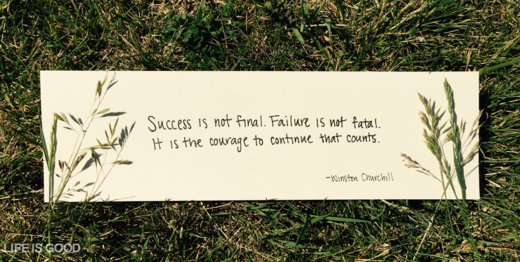 Success is not final. Failure is not fatal.
It is the courage to continue that counts.
-Winston Churchill
LIFE IS GOOD